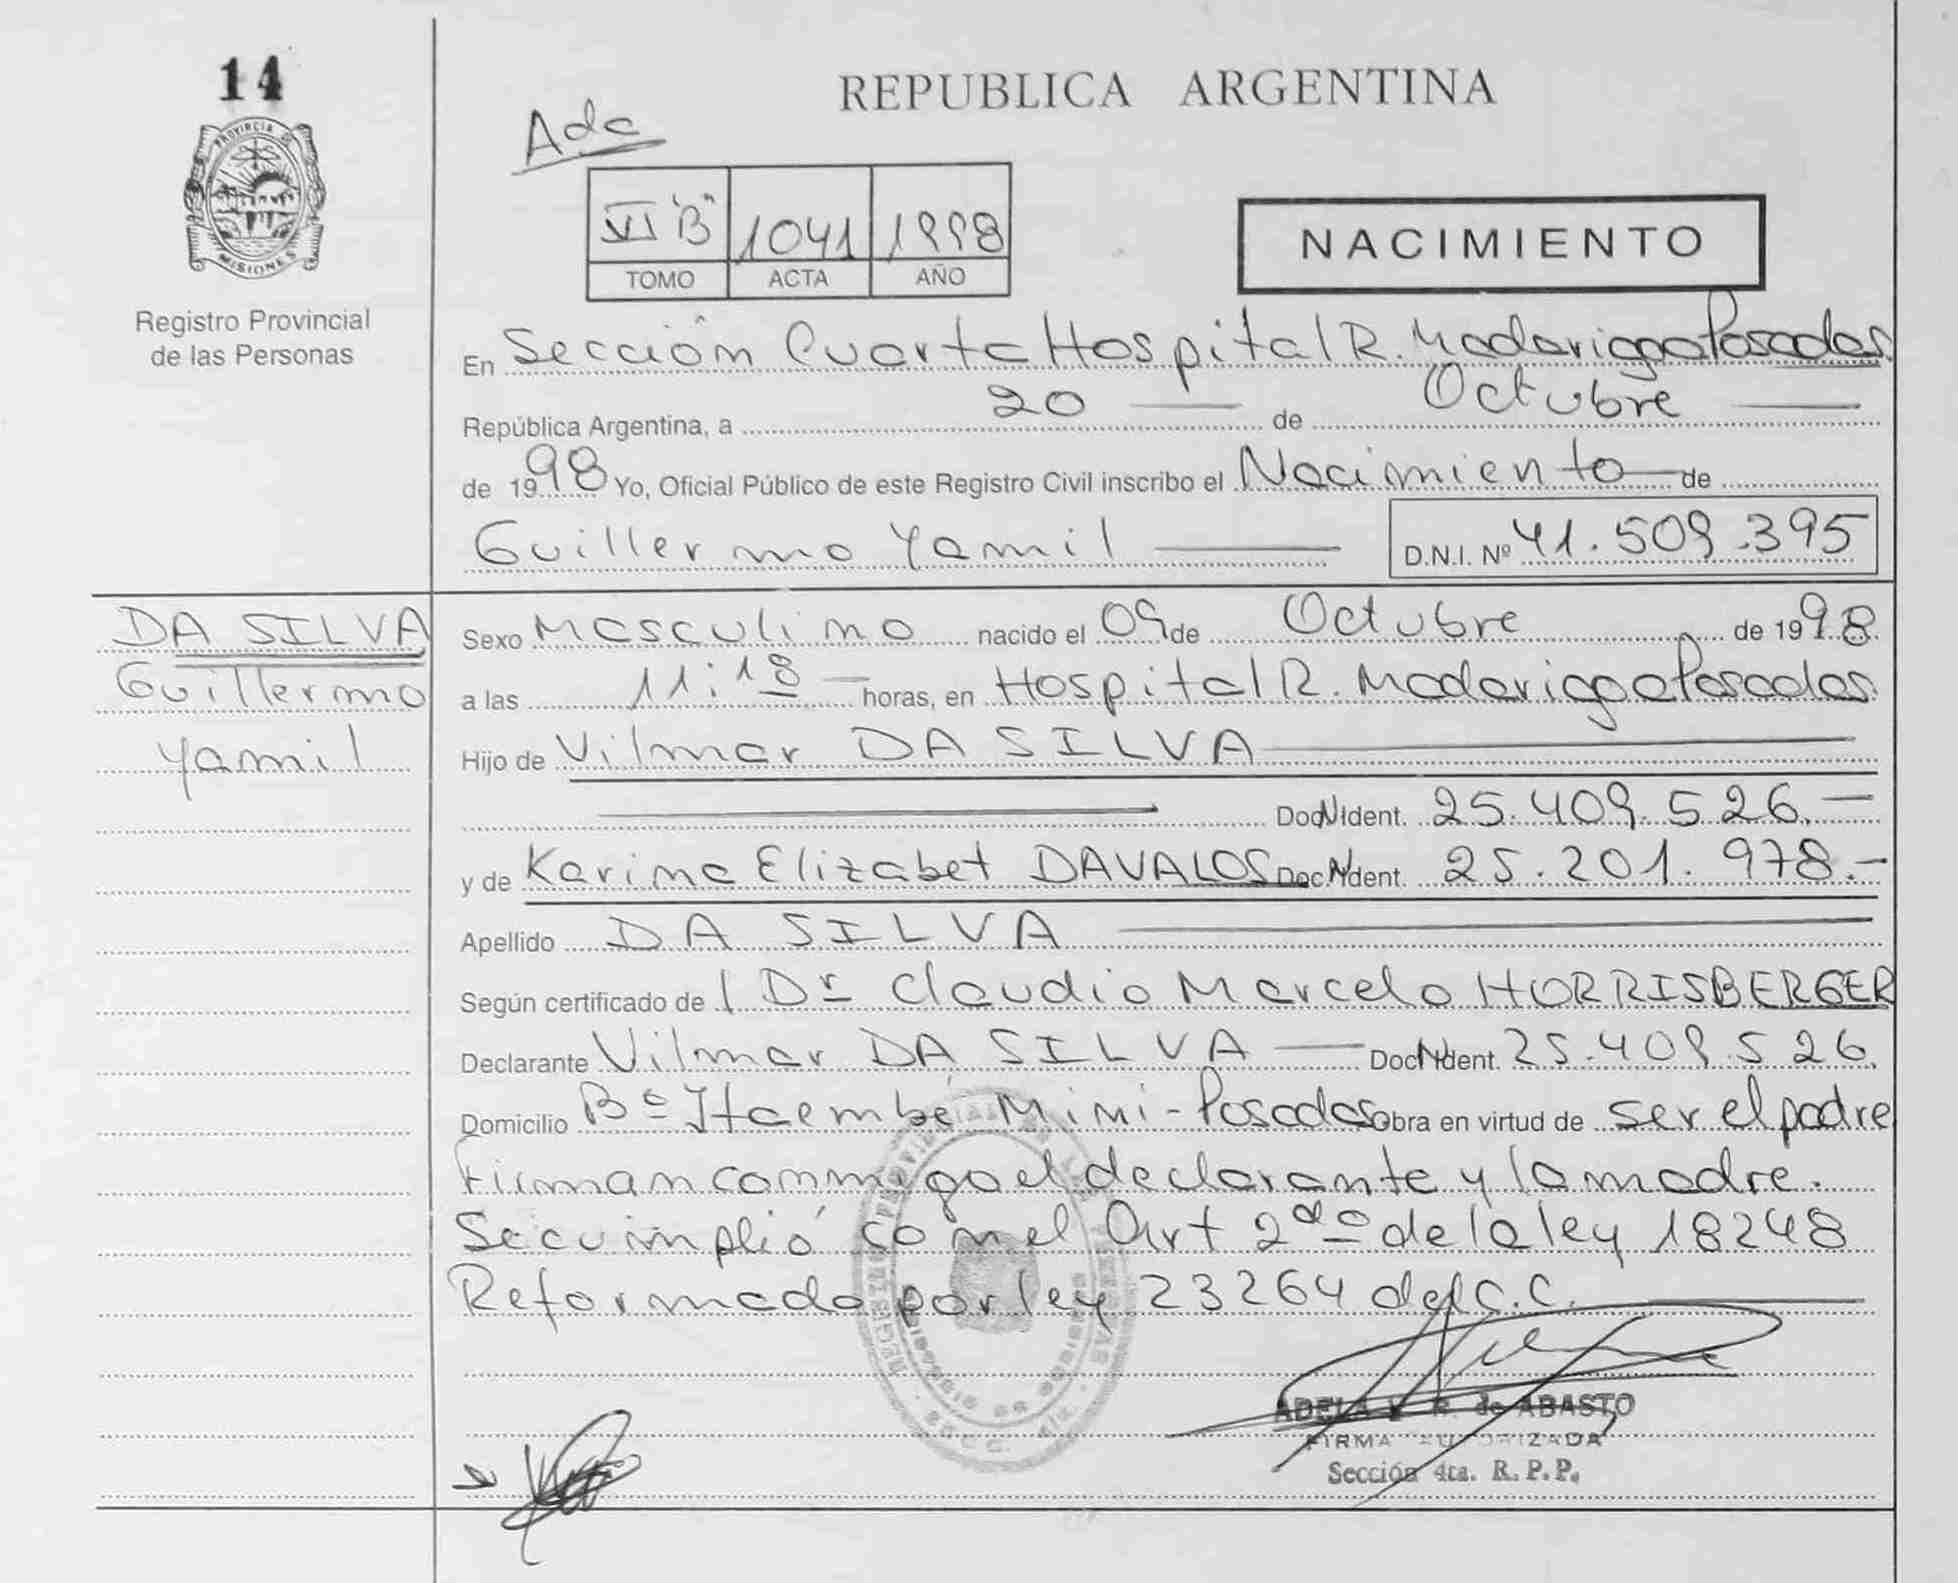 14
REPUBLICA ARGENTINA
Ada
PROVINCIA DE
MISIONES
VI "B" 1041 1998
TOMO ACTA AÑO
NACIMIENTO
Registro Provincial
de las Personas
En Sección Cuarta Hospital R. Madariaga Posadas
República Argentina, a 20 de Octubre
de 1998 Yo, Oficial Público de este Registro Civil inscribo el Nacimiento de
Guillermo Yamil D.N.I. Nº 41.509.395
DA SILVA
Guillermo
Yamil
Sexo Masculino nacido el 09 de Octubre de 1998
a las 11:18 horas, en Hospital R. Madariaga Posadas.
Hijo de Vilmar DA SILVA
Doc N Ident. 25.409.526.-
y de Karina Elizabet DAVALOS Doc N Ident. 25.201.978.-
Apellido DA SILVA
Según certificado de l Dr Claudio Marcelo HORRISBERGER
Declarante Vilmar DA SILVA Doc N Ident. 25.409.526.
Domicilio Bº Itaembé Mini - Posadas Obra en virtud de ser el padre
Firman conmigo el declarante y la madre.
Se cumplió con el Art 2do de la ley 18248
Reformado por ley 23264 del C.C.
ADELA R. de ABASTO
FIRMA AUTORIZADA
Sección 4ta. R. P. P.